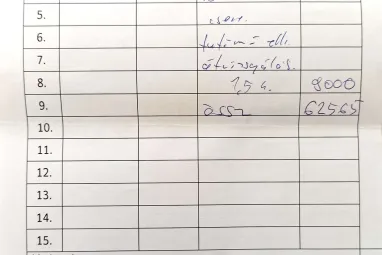 5. csere.
6. futómű ell.
7. átvizsgálás.
8. 1,5 ó. 9000
9. össz 62565
10.
11.
12.
13.
14.
15.